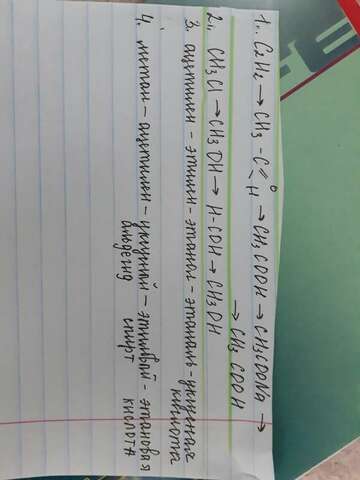 1.. C2H2 → CH3 - C =O - H → CH3COOH → CH3COONa →
→ CH3 COOH
2.. CH3Cl → CH3OH → H-COH → CH3OH
3. ацетилен - этилен - этанол - этаналь - уксусная
кислота
4. метан - ацетилен - уксусный - этиловый - этановая
альдегид спирт кислота